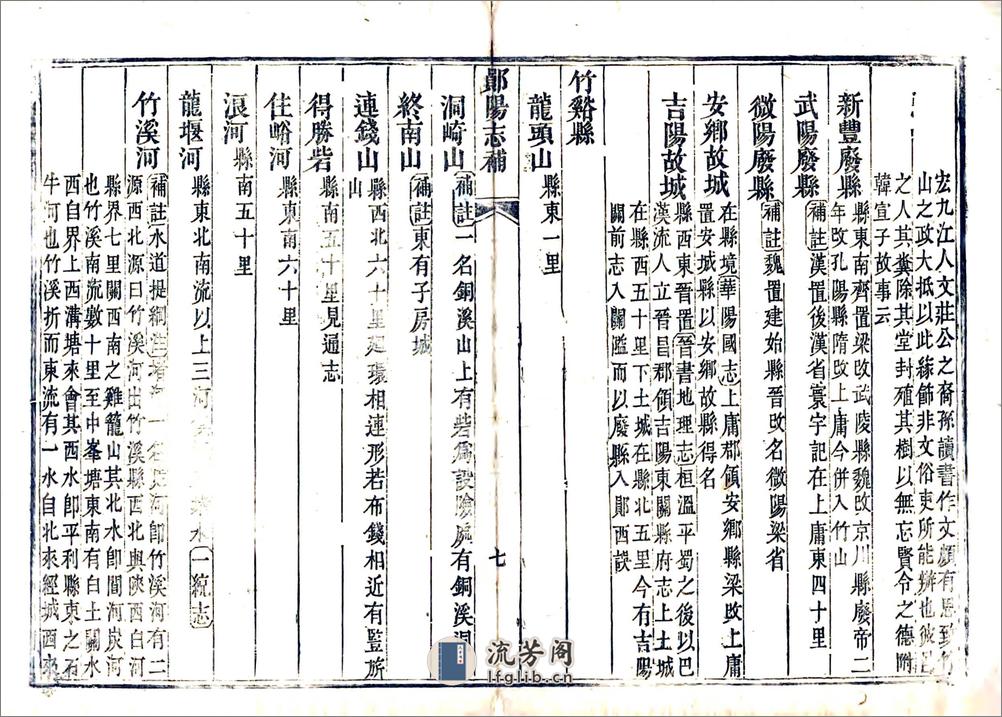 宏九江人文莊公之裔孫讀書作文頗有思致竹
山之政大抵以此緣飾非文俗吏所能辦也彼邑
之人其糞除其堂封殖其樹以無忘賢令之德附
韓宣子故事云
新豐廢縣 縣東南齊置梁改武陵縣魏改京川縣廢帝二
年改孔陽縣隋改上庸今併入竹山
武陽廢縣 補註漢置後漢省寰宇記在上庸東四十里
微陽廢縣 補註魏置建始縣晉改名微陽梁省
安鄉故城 在縣境華陽國志上庸郡領安鄉縣梁改上庸
置安城縣以安鄉故縣得名
吉陽故城 縣西東晉置晉書地理志桓溫平蜀之後以巴
漢流人立晉昌郡領吉陽東關縣府志上土城
在縣西五十里下土城在縣北五里今有吉陽
關前志入關濫而以廢縣入鄖西誤
竹谿縣
龍頭山 縣東一里
鄖陽志補
七
洞崎山 補註一名銅溪山上有砦為設險處有銅溪洞
終南山 補註東有子房城
連錢山 縣西北六十里廻環相連形若布錢相近有監旂
山
得勝砦 縣南五十里見通志
住峪河 縣東南六十里
浪河 縣南五十里
龍堰河 縣東北南流以上三河 水一統志
竹溪河 補註水道提綱注堵河一名 河即竹溪河有二
源西北源曰竹溪河出竹溪縣西北與陝西白河
縣界七里關西南之雞籠山其北水即間河炭河
也竹溪南流數十里至中峯塘東南有白土關水
西自界上西溝塘來會其西水即平利縣東之石
牛河也竹溪折而東流有一水自北來經城西來
流芳阁
lfglib.cn